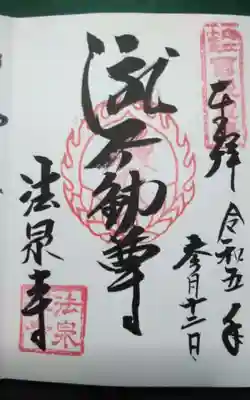 奉拝 令和五年
参月十二日
瀧不動尊
法泉寺
法泉